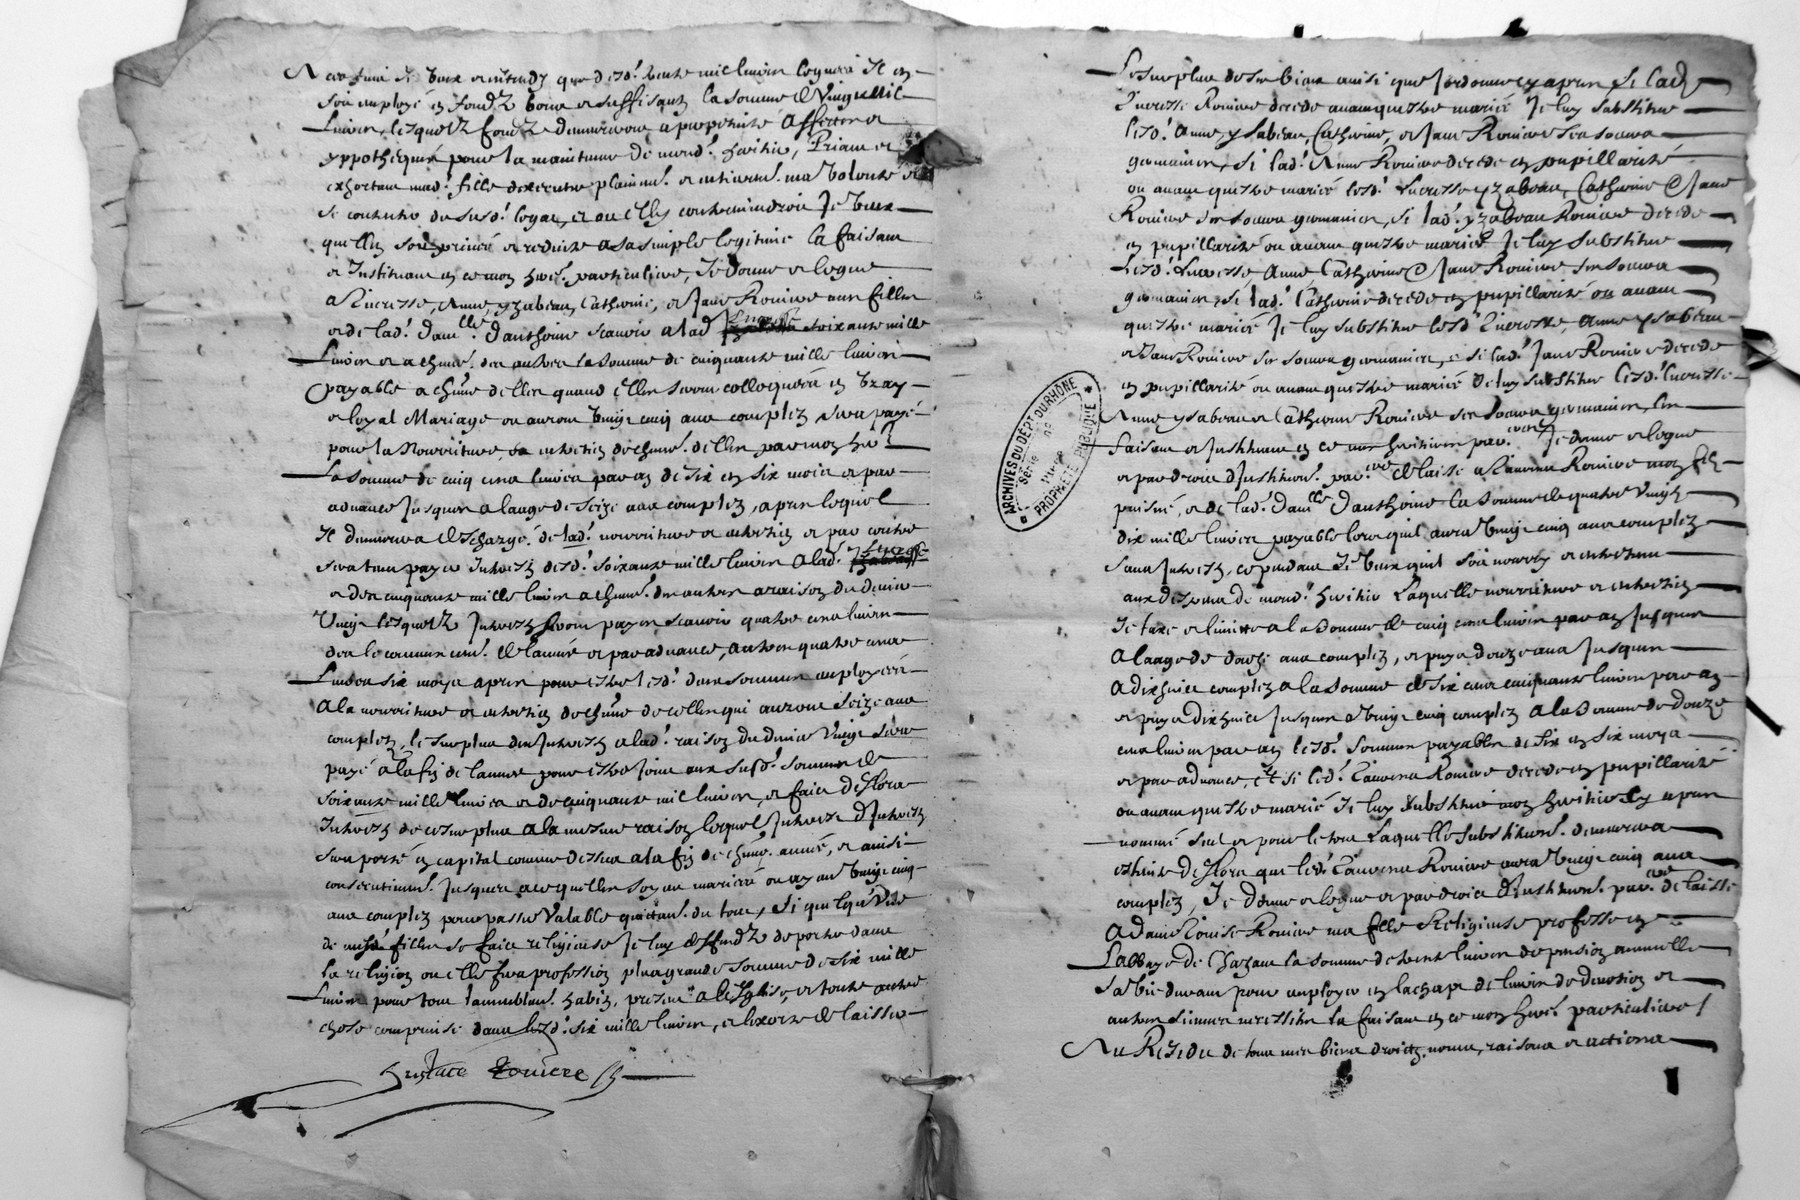 Et veux et entendz que desd. trente mil livres leguées Il en
soit employé en fondz bons et suffisans la somme de vingt mil
Livres, lesquelz fondz demeureront a perpetuité affectés et
yppothequés pour la maintenue de mond. heritier, Priant et
exhortant mad. fille d'executer plainemt. et entieremt. ma volonté et
se contenter du susd. legat, et ou elle y contreviendroit Je veux
quelle soit privée et reduite a sa simple legitime la faisant
et Instituant en ce mon herre. particuliere, Je donne et legue
a Lucresse, Anne, yzabeau, Catherine, et Jane Roviere mes filles
et de lad. damlle. Danthoine scavoir a lad. Lucresse soixante mille
Livres et a chune. des autres la somme de cinquante mille livres
payable a chune d'elles quand elles seront colloquées en vray
et loyal Mariage ou auront vingt cinq ans completz sera payé
pour la Nourriture, et entretien de chune. d'elles par mon her.
La somme de cinq cens livres par an de six en six mois et par
advance Jusques a laage de seize ans completz, apres lequel
Il demeurera deschargé de lad. nourriture et entretien et par contre
sera tenu payer Interestz desd. soixante mille livres a lad. Lucresse
et des cinquante mille livres a chune. des autres a raison du denier
Vingt lesquelz Interestz seront payés scavoir quatre cens livres
des le commencemt. de l'année et par advance, autres quatre cens
Livres six moys apres pour estre lesd. deux sommes employées
A la nourriture et entretien de chune de celles qui auront seize ans
completz, le surplus des Interestz a lad. raison du denier vingt sera
payé a la fin de l'année pour estre joint aux susd. sommes de
soixante mille livres et de cinquante mil livres, et faict deslors
Interestz de ce surplus a la mesme raison lequel Interest d'Interestz
sera porté en capital comme dessus a la fin de chune. année, et ainsi
consecutivemt. Jusques a ce quelles soyent mariées ou ayent vingt cinq
ans completz pour passer valable quittance. du tout, Si quelqu'une
de mesd. filles se faict religieuse Je luy deffendz de porter dans
la religion ou elle fera profession plus grande somme de six mille
Livres pour tout lameublemt. habitz, present a l'Eglise, et toute autre
chose comprinse dans lesd. six mille livres, et l'exorte de laisser
Eustace Roviere
Le surplus de ses biens ainsi que J'ordonne cy apres Si lad.
Lucresse Roviere decede avant questre mariée Je luy substitue
lesd. Anne, ysabeau, Catherine, et Jane Roviere ses soeurs
germaines, Si lad. Anne Roviere decede en pupillarité
ou avant questre mariée lesd. Lucresse yzabeau, Catherine & Jane
Roviere ses soeurs germaines, Si lad. yzabeau Roviere decede
en pupillarité ou avant questre mariée Je luy substitue
Lesd. Lucresse Anne Catherine & Jane Roviere ses soeurs
germaines, Si lad. Catherine decede en pupillarité ou avant
questre mariée Je luy substitue lesd. Lucresse, Anne ysabeau
et Jane Roviere ses soeurs germaines, et si lad. Jane Roviere decede
en pupillarité ou avant questre mariée Je luy substitue lesd. Lucresse
Anne ysabeau et Catherine Roviere ses soeurs germaines, les
faisant et Instituant en ce mes heritieres par.eres Je donne et legue
et par droit d'Institution. par.ere delaisse a Laurens Roviere mon filz
puisné, et de lad. damlle Danthoine la somme de quatre vingtz
dix mille livres payable lors quil aura vingt cinq ans completz
sans Interestz, cependant Je veux quil soit nourry et entretenu
aux despens de mond. heritier Laquelle nourriture et entretien
Je taxe et limitte a la somme de cinq cens livres par an Jusques
A laage de douze ans completz, et puys douze ans Jusques
A dix huict completz a la somme de six cens cinquante livres par an
et puys dix huict Jusques a vingt cinq completz a la somme de douze
cens livres par an lesd. sommes payables de six en six moys
et par advance, Et si led. Laurens Roviere decede en pupillarité
ou avant questre marié Je luy substitue mon heritier cy apres
nommé seul et pour le tout Laquelle substitution. demeurera
estainte deslors que led. Laurens Roviere aura vingt cinq ans
completz, Je donne et legue et par droict d'Institution. par.ere delaisse
A dame Louise Roviere ma fille Religieuse professe en
L'abbaye de Chazaux la somme de trente livres de pension annuelle
sa vie durant pour employer en lachapt de livres de devotion et
autres siennes necessités la faisant en ce mon herre. particuliere /
Au Residu de tous mes biens droictz, noms, raisons et actions
ARCHIVES DU DÉPT DU RHÔNE
PROPRIÉTÉ PUBLIQUE